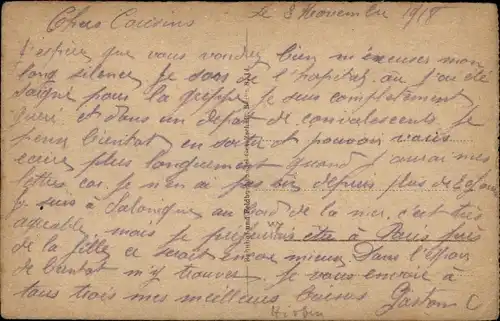 Chers Cousins Le 8 Novembre 1918
J'espère que vous voudrez bien m'excuser mon
long silence je sors de l'hopital ou j'ai été
soigné pour la grippe je suis completement
gueri et dans un depot de convalescents. Je
pense bientot en sortir et pouvoir vous
ecrire plus longuement quand j'aurai mes
lettres car je n'en ai pas eu depuis plus de
je suis à Salonique au bord de la mer. c'est très
agreable mais je prefererais être à Paris près
de la fille ce serait encore mieux. Dans l'espoir
de bientot m'y trouver je vous envoie à
tous trois mes meilleurs baisers Gaston C